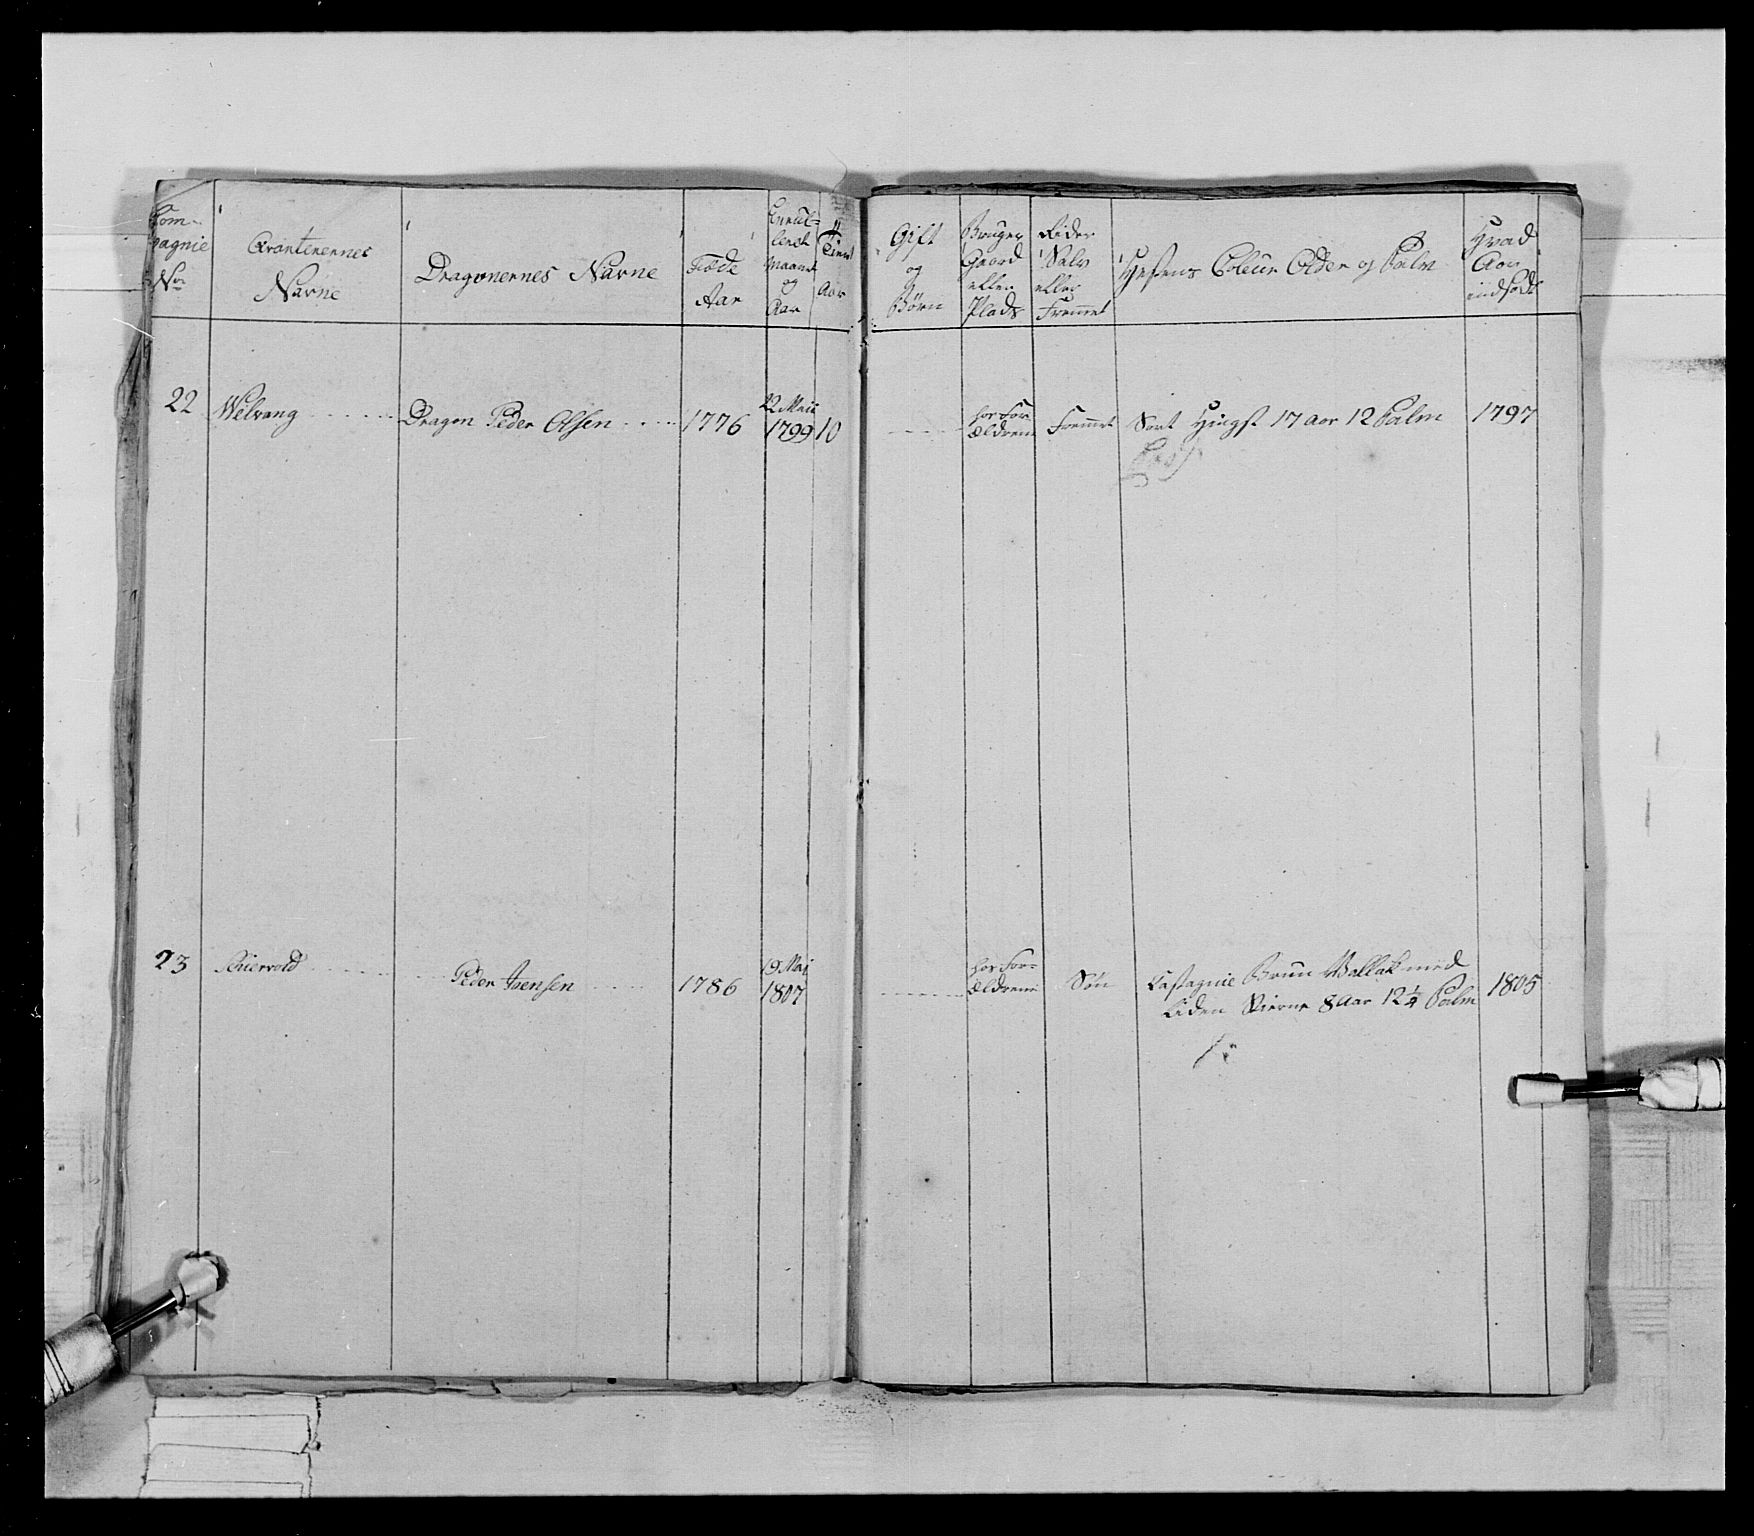 Com-
pagnie
No
Qvarterernes
Navne
Dragonernes Navne
Føde
Aar
Enrul-
leret
Maaned
og
Aar
Tient
Aar
Gift
og
Børn
Bruger
Gaard
eller
Plads
Rider
Sælv
eller
Fremmet
Hestens Coleur Alder og Palm
Hvad
Aar
indsadt
22 Welvang Dragon Peder Olsen 1776
22 Maii
1799 10
hos For
ældrene
Fremmet Sort Hingst 17 aar 12 Palm 1797
23 Peder Iversen 1786
19 Mai
1807
hos For-
ældrene
Søn Castagnie Bruun Wallak med
Liden Stierne 8 Aar 12¼ Palm 1805